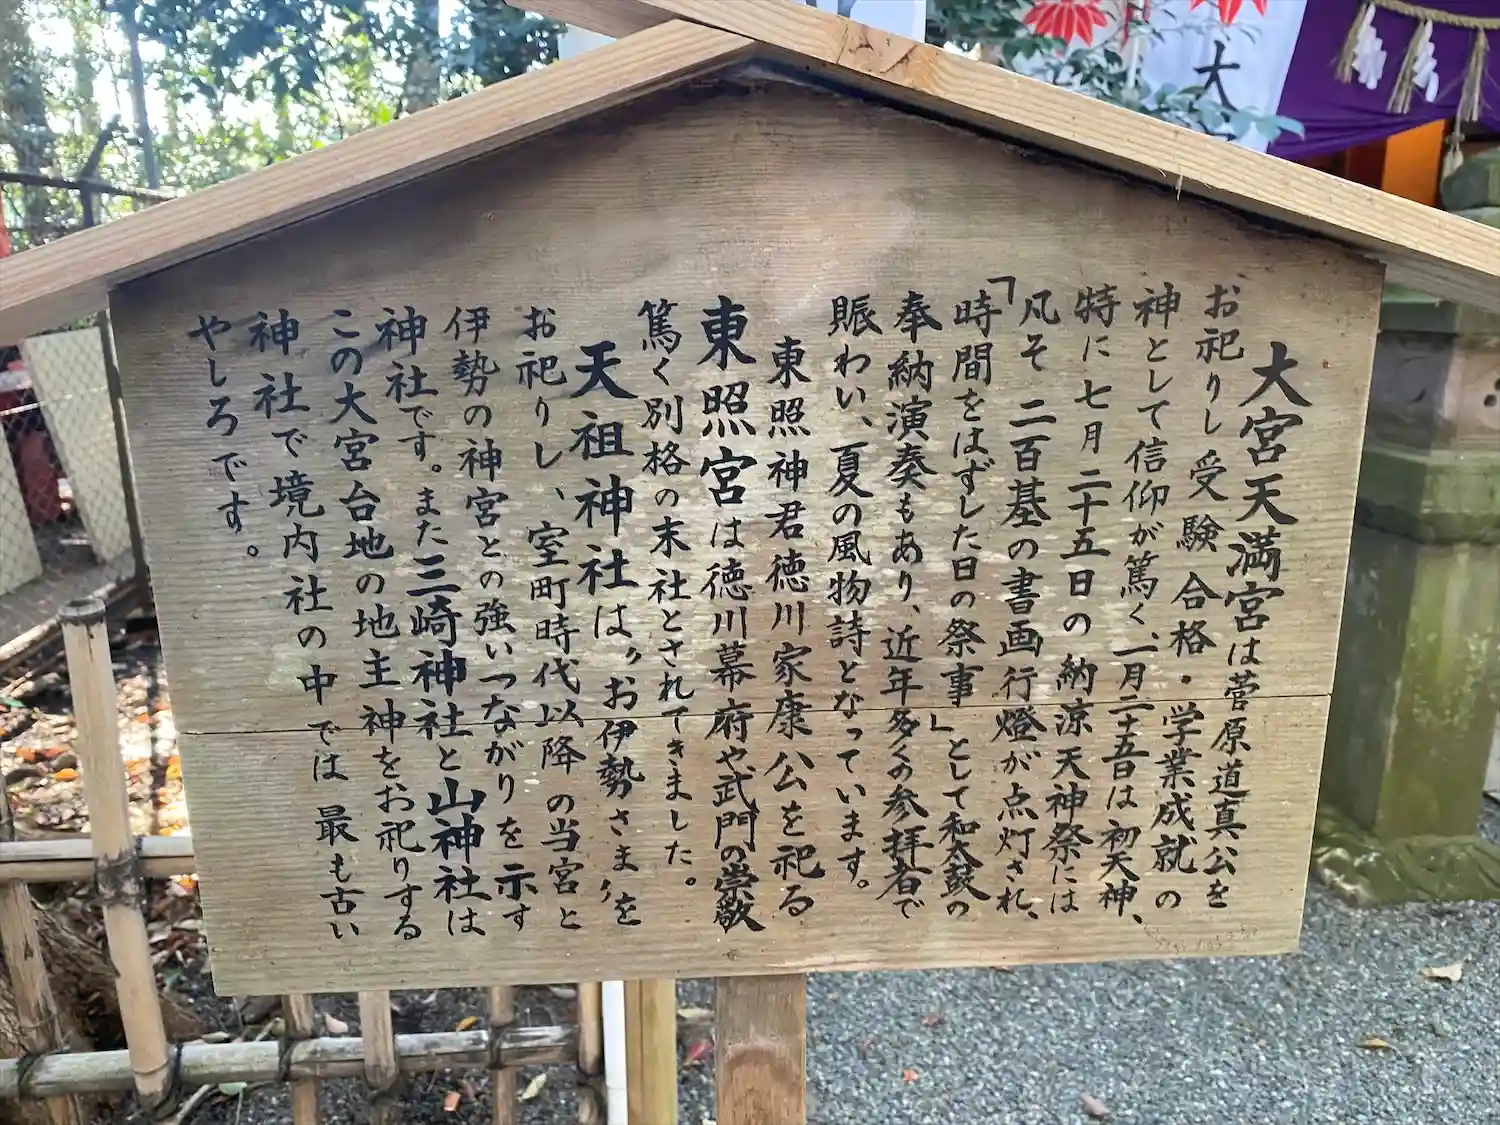 大宮天満宮は菅原道真公を
お祀りし受験合格・学業成就の
神として信仰が篤く、一月二十五日は初天神、
特に七月二十五日の納涼天神祭には
凡そ二百基の書画行燈が点灯され、
「時間をはずした日の祭事」として和太鼓の
奉納演奏もあり、近年多くの参拝者で
賑わい、夏の風物詩となっています。
東照神君徳川家康公を祀る
東照宮は徳川幕府や武門の崇敬
篤く別格の末社とされてきました。
天祖神社は〝お伊勢さま〟を
お祀りし、室町時代以降の当宮と
伊勢の神宮との強いつながりを示す
神社です。また三崎神社と山神社は
この大宮台地の地主神をお祀りする
神社で境内社の中では最も古い
やしろです。
大